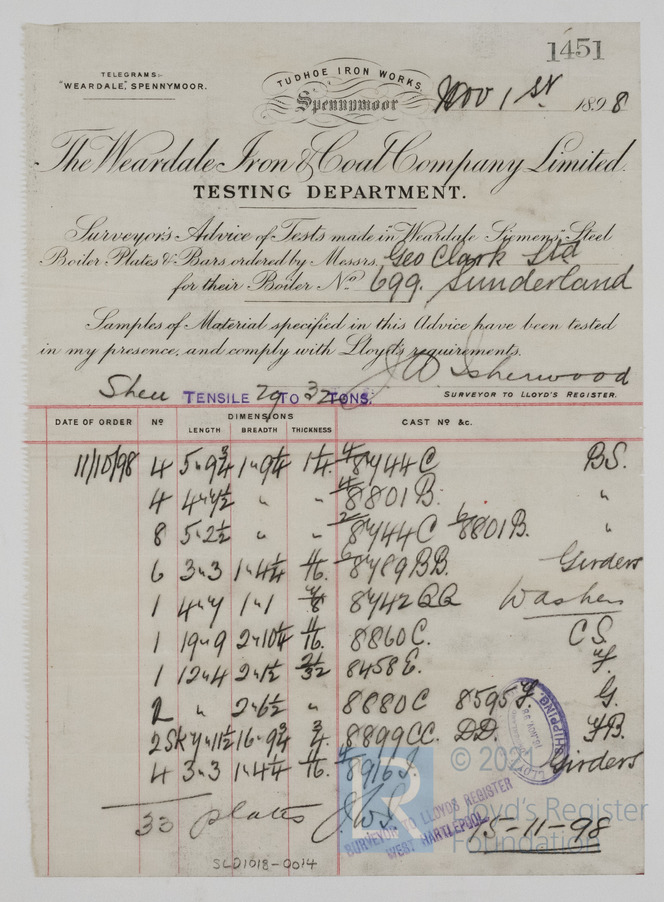 1451
TELEGRAMS:-
"WEARDALE," SPENNYMOOR.
TUDHOE IRON WORKS,
Spennymoor
Nov 1st 1898
The Weardale Iron & Coal Company Limited.
TESTING DEPARTMENT.
Surveyor's Advice of Tests made in "Weardale Siemens" Steel
Boiler Plates & Bars ordered by Messrs. Geo Clark Ltd
for their Boiler No. 699. Sunderland
Samples of Material specified in this Advice have been tested
in my presence, and comply with Lloyd's requirements.
J W Isherwood
SURVEYOR TO LLOYD'S REGISTER.
Shell TENSILE 29 TO 32 TONS.
DATE OF ORDER No DIMENSIONS CAST No &c.
LENGTH BREADTH THICKNESS
11/10/98 4 5"9¾ 1"9¼ 1¼ 4/8744C B.S.
4 4"4½ " " 4/8801B. "
8 5"2½ " " 2/8744C 6/8801B. "
6 3"3 1"4¼ 11/16. 6/8789BB. Girders
1 4"4 1"1 7/8 8742BB Washers
1 19"9 2"10¼ 11/16. 8860C. C.S.
1 12"4 2"1½ 21/32 8458E. F.
2 " 2"6½ " 8880C 8595F. G.
2 SK 4"11½ 16"9¾ ¾. 8899CC. DD. F.B.
4 3"3 1"4¼ 11/16. 4/8916J. Girders
33 plates J.W.I.
SURVEYOR TO LLOYDS REGISTER
WEST HARTLEPOOL
LLOYDS
SHIPPING.
15-11-98
SLD1018-0014
LR
© 2021
Lloyd's Register
Foundation